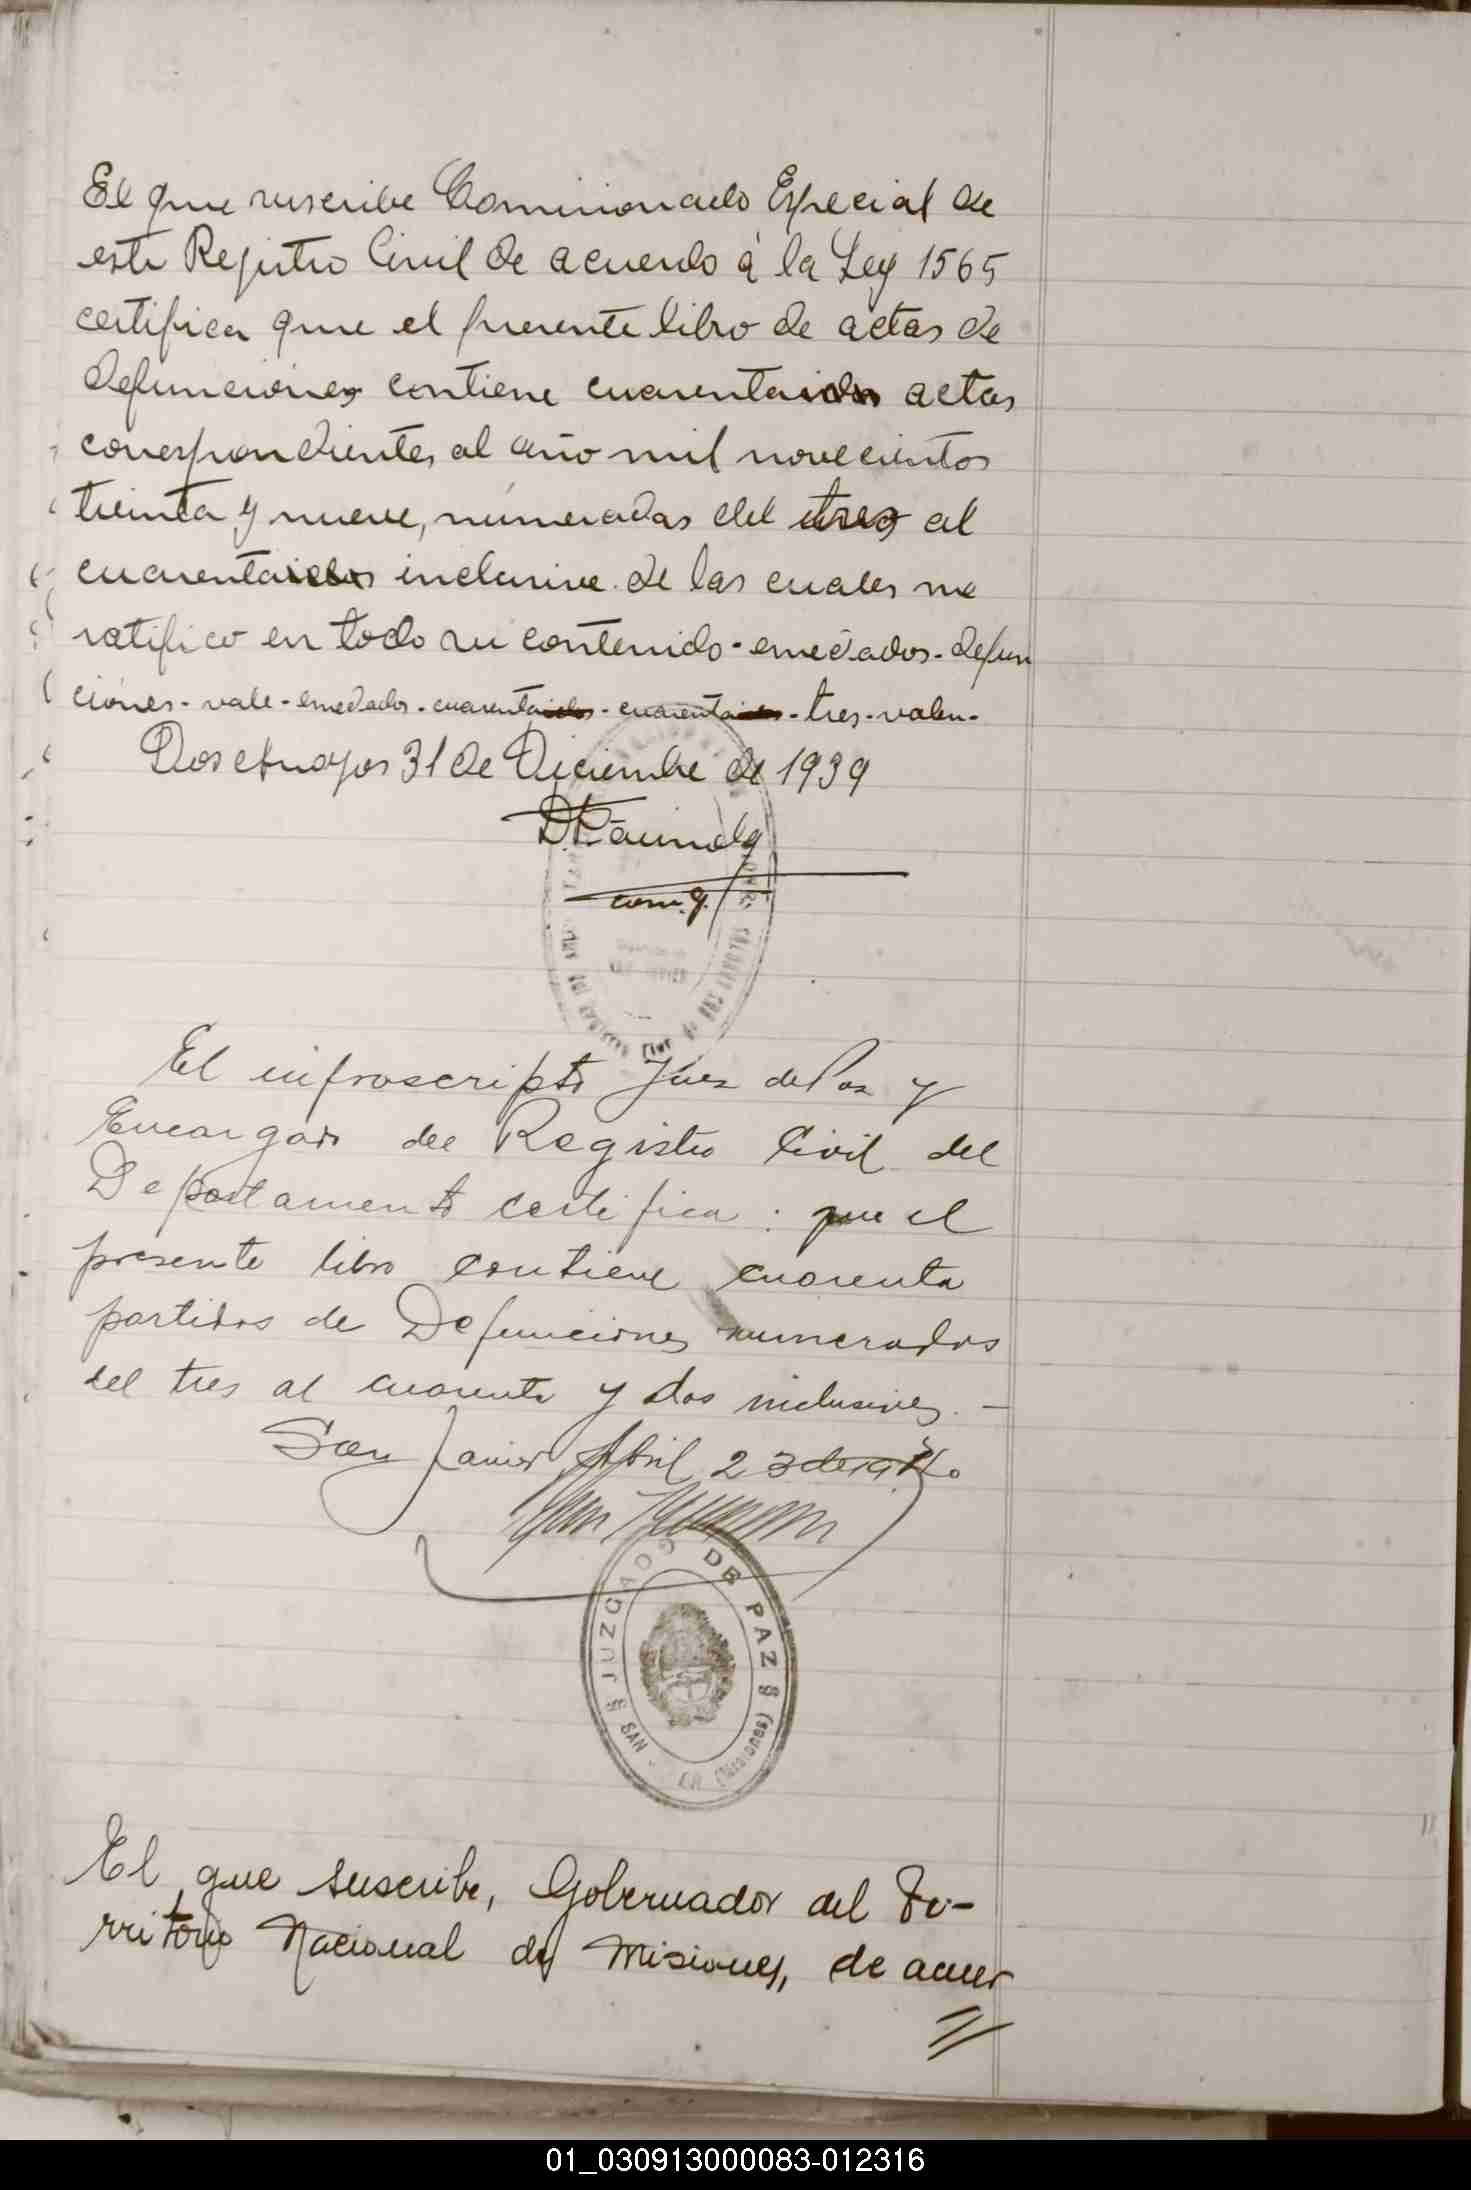 El que suscribe Comisionado Especial de
este Registro Civil de acuerdo á la Ley 1565
certifica que el presente libro de actas de
defunciones contiene cuarentaidos actas
correspondientes al año mil novecientos
treinta y nueve, númeradas del tres al
cuarentaidos inclusive de las cuales me
ratifico en todo su contenido - emedados - defun
ciones - vale - emedados - cuarentaidos - cuarentaidos - tres - valen -
Dos Arroyos 31 de Diciembre de 1939
El infrascripto Juez de Paz y
Encargado del Registro Civil del
Departamento certifica: que el
presente libro contiene cuarenta
partidas de Defunciones numeradas
del tres al cuarenta y dos inclusives. -
San Javier, Abril 23 de 1940
JUZGADO DE PAZ
SAN (Misiones)
El que suscribe, Gobernador del Te-
rritorio Nacional de Misiones, de acuer
01_030913000083-012316